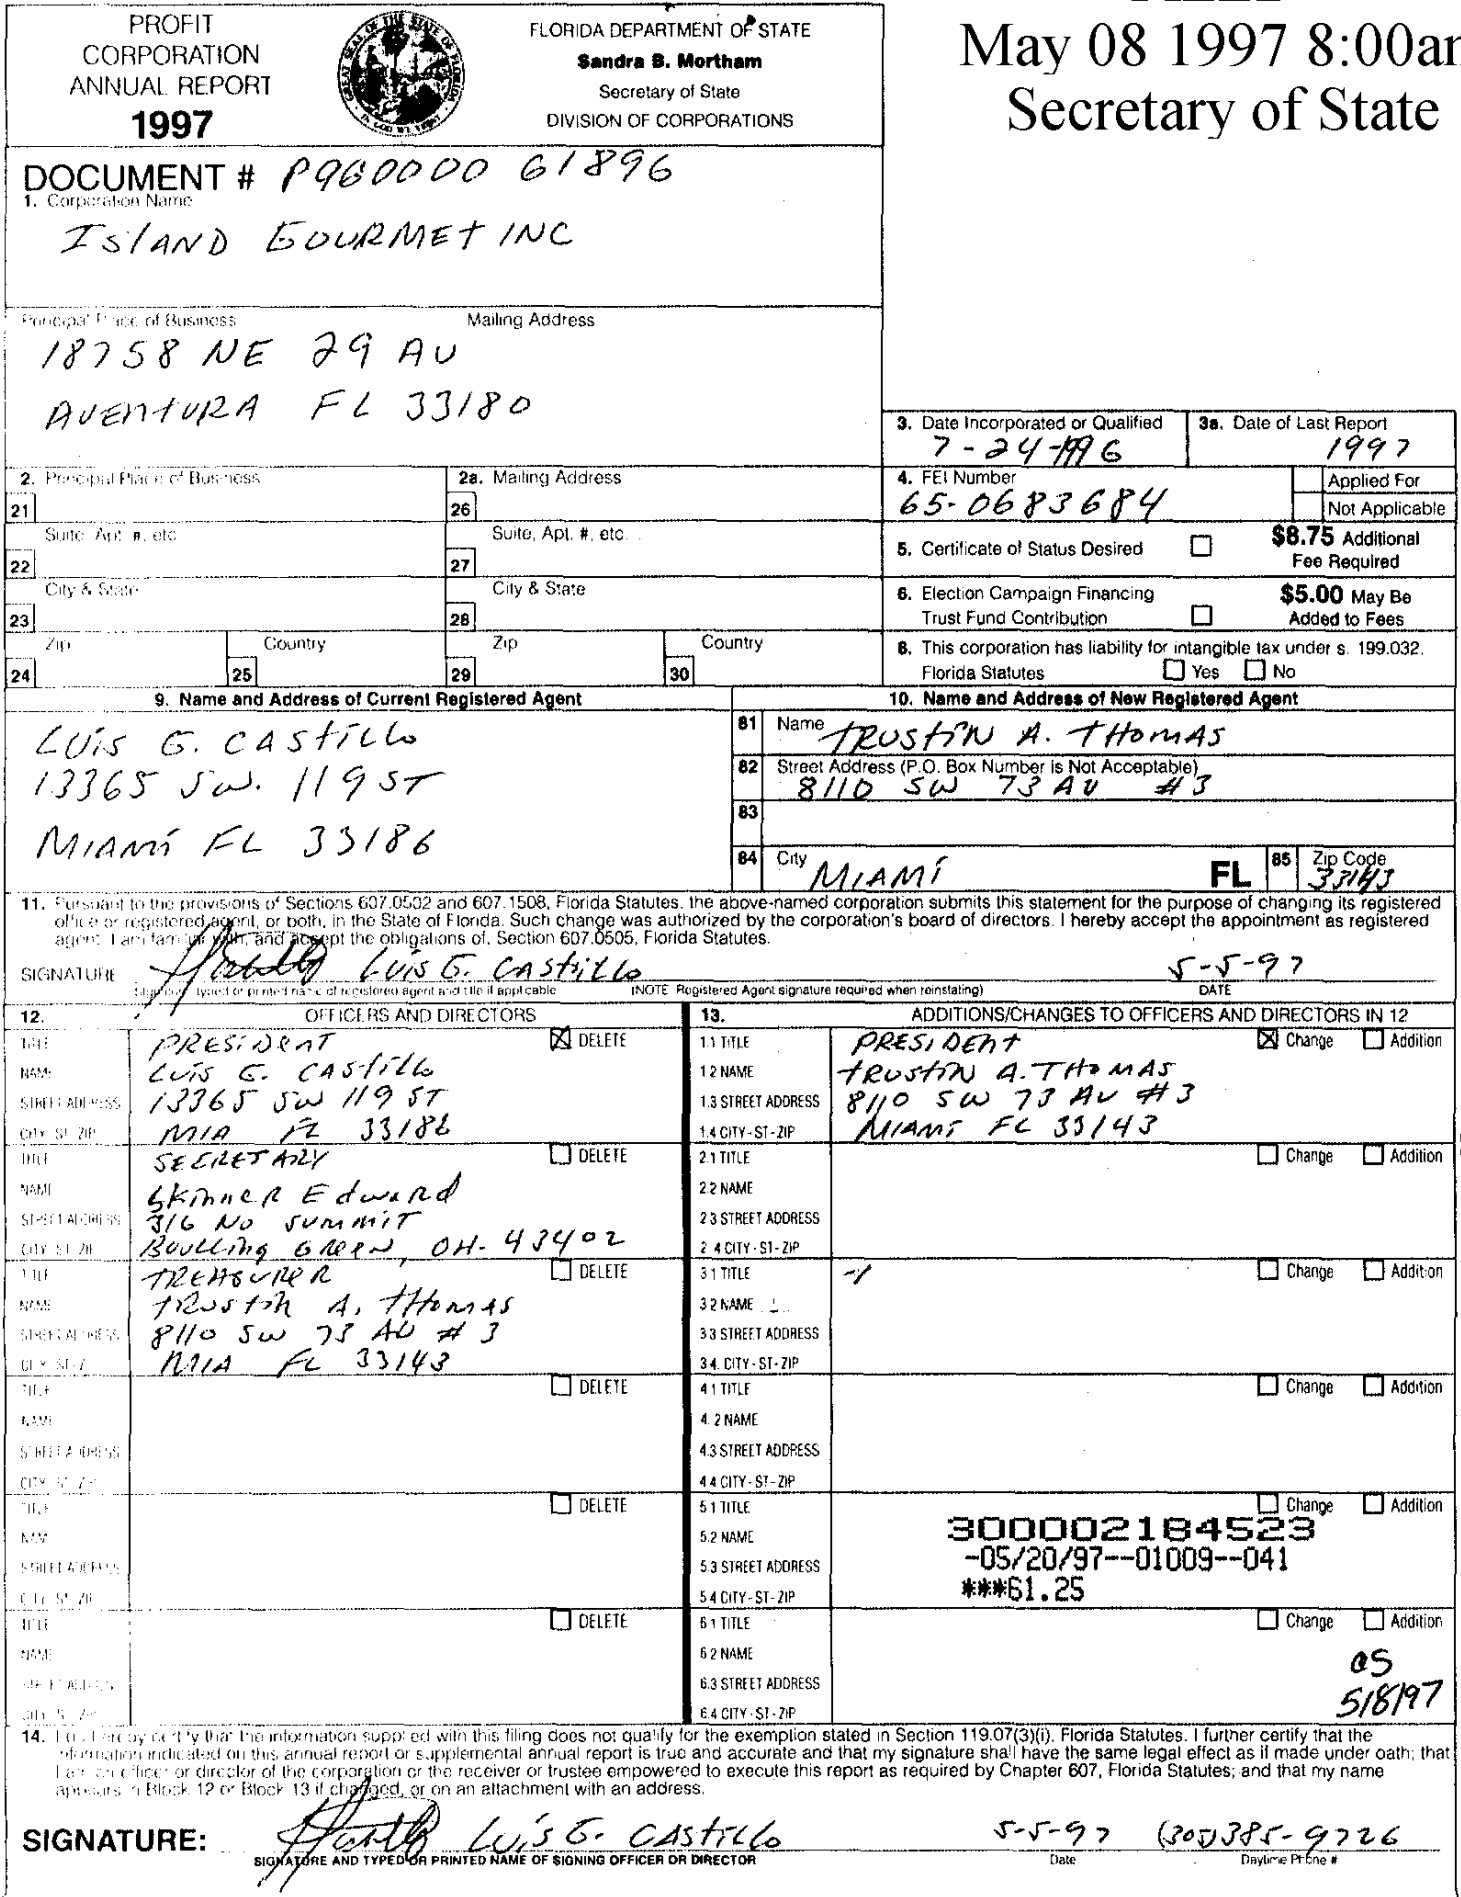 PROFIT
CORPORATION
ANNUAL REPORT
1997
FLORIDA DEPARTMENT OF STATE
Sandra B. Mortham
Secretary of State
DIVISION OF CORPORATIONS
May 08 1997 8:00am
Secretary of State
DOCUMENT # P960000 61896
1. Corporation Name
ISLAND GOURMET INC
Principal Place of Business Mailing Address
18758 NE 29 AV
AVENTURA FL 33180
3. Date Incorporated or Qualified 3a. Date of Last Report
7-24-1996 1997
2. Principal Place of Business 2a. Mailing Address
21 26
4. FEI Number Applied For
65-0683684 Not Applicable
Suite, Apt. #, etc. Suite, Apt. #, etc.
22 27
5. Certificate of Status Desired $8.75 Additional
Fee Required
City & State City & State
23 28
6. Election Campaign Financing $5.00 May Be
Trust Fund Contribution Added to Fees
Zip Country Zip Country
24 25 29 30
8. This corporation has liability for intangible tax under s. 199.032,
Florida Statutes Yes No
9. Name and Address of Current Registered Agent
LUIS G. CASTILLO
13365 SW. 119 ST
MIAMI FL 33186
10. Name and Address of New Registered Agent
81 Name TRUSTIN A. THOMAS
82 Street Address (P.O. Box Number is Not Acceptable)
8110 SW 73 AV #3
83
84 City MIAMI FL 85 Zip Code 33143
11. Pursuant to the provisions of Sections 607.0502 and 607.1508, Florida Statutes, the above-named corporation submits this statement for the purpose of changing its registered
office or registered agent, or both, in the State of Florida. Such change was authorized by the corporation's board of directors. I hereby accept the appointment as registered
agent. I am familiar with, and accept the obligations of, Section 607.0505, Florida Statutes.
SIGNATURE LUIS G. CASTILLO 5-5-97
Signature, typed or printed name of registered agent and title if applicable (NOTE Registered Agent signature required when reinstating) DATE
12. OFFICERS AND DIRECTORS
TITLE PRESIDENT DELETE
NAME LUIS G. CASTILLO
STREET ADDRESS 13365 SW 119 ST
CITY-ST-ZIP MIA FL 33186
TITLE SECRETARY DELETE
NAME SKINNER Edward
STREET ADDRESS 316 NO SUMMIT
CITY-ST-ZIP Boulling GREEN, OH. 43402
TITLE TREASURER DELETE
NAME TRUSTIN A. THOMAS
STREET ADDRESS 8110 SW 73 AV #3
CITY-ST-ZIP MIA FL 33143
TITLE DELETE
NAME
STREET ADDRESS
CITY-ST-ZIP
TITLE DELETE
NAME
STREET ADDRESS
CITY-ST-ZIP
TITLE DELETE
NAME
STREET ADDRESS
CITY-ST-ZIP
13. ADDITIONS/CHANGES TO OFFICERS AND DIRECTORS IN 12
1.1 TITLE PRESIDENT Change Addition
1.2 NAME TRUSTIN A. THOMAS
1.3 STREET ADDRESS 8110 SW 73 AV #3
1.4 CITY-ST-ZIP MIAMI FL 33143
2.1 TITLE Change Addition
2.2 NAME
2.3 STREET ADDRESS
2.4 CITY-ST-ZIP
3.1 TITLE Change Addition
3.2 NAME
3.3 STREET ADDRESS
3.4. CITY-ST-ZIP
4.1 TITLE Change Addition
4.2 NAME
4.3 STREET ADDRESS
4.4 CITY-ST-ZIP
5.1 TITLE Change Addition
5.2 NAME 3000002184523
5.3 STREET ADDRESS -05/20/97--01009--041
5.4 CITY-ST-ZIP ***61.25
6.1 TITLE Change Addition
6.2 NAME
6.3 STREET ADDRESS
6.4 CITY-ST-ZIP 5/8/97
14. I do hereby certify that the information supplied with this filing does not qualify for the exemption stated in Section 119.07(3)(i), Florida Statutes. I further certify that the
information indicated on this annual report or supplemental annual report is true and accurate and that my signature shall have the same legal effect as if made under oath; that
I am an officer or director of the corporation or the receiver or trustee empowered to execute this report as required by Chapter 607, Florida Statutes; and that my name
appears in Block 12 or Block 13 if changed, or on an attachment with an address.
SIGNATURE: LUIS G. CASTILLO 5-5-97 (305)385-9726
SIGNATURE AND TYPED OR PRINTED NAME OF SIGNING OFFICER OR DIRECTOR Date Daytime Phone #